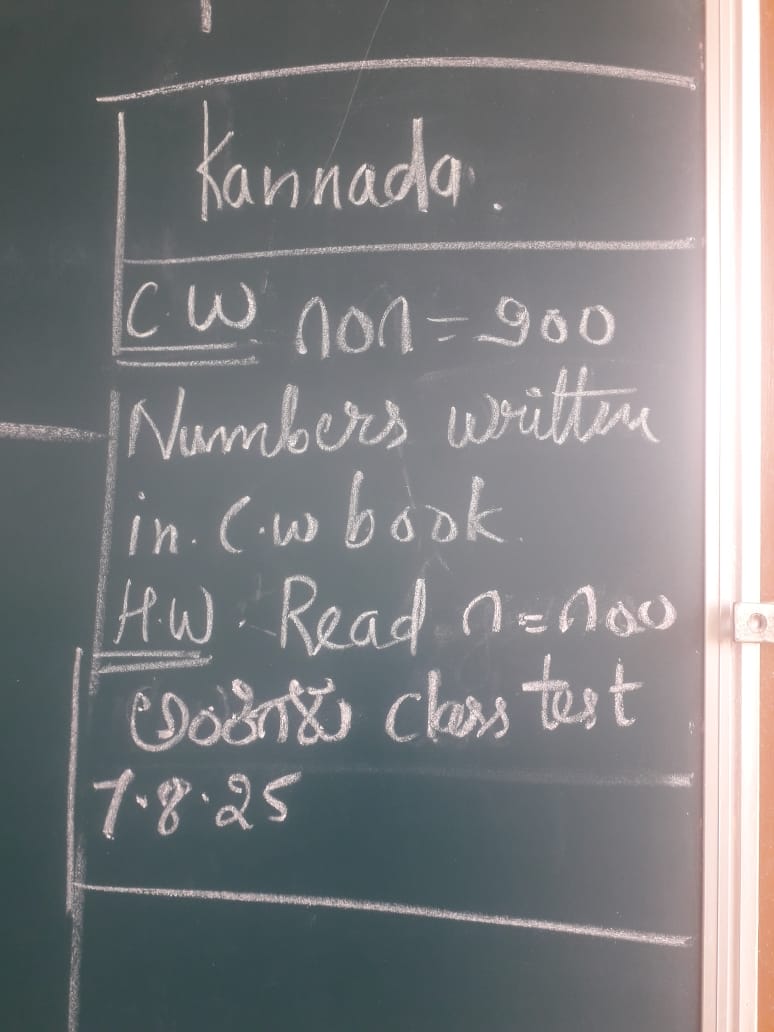 Kannada.
C.W ೧೦೧=೨೦೦
Numbers written
in. C.w book.
H.W. Read ೧=೧೦೦
ಅಂಕಿಗಳು class test
7.8.25